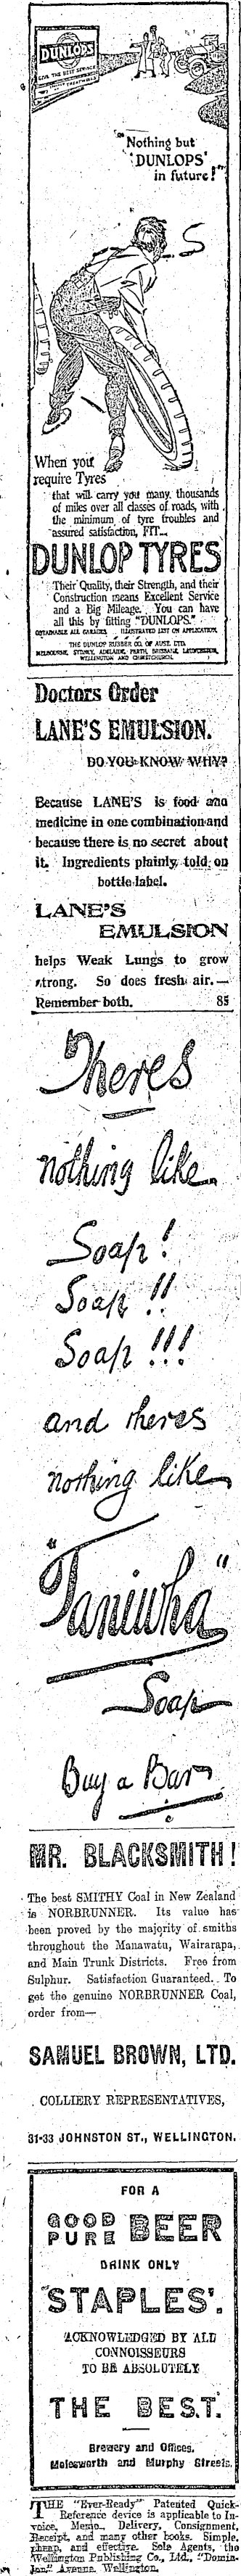 DUNLOPS
GIVE THE BEST SERVICE
"Nothing but
'DUNLOPS'
in future!"
When you
require Tyres
that will carry you many thousands
of miles over all classes of roads, with
the minimum of tyre troubles and
assured satisfaction, FIT—
DUNLOP TYRES
Their Quality, their Strength, and their
Construction means Excellent Service
and a Big Mileage. You can have
all this by fitting "DUNLOPS."
OBTAINABLE ALL GARAGES. ILLUSTRATED LIST ON APPLICATION.
THE DUNLOP RUBBER CO. OF AUST. LTD.
MELBOURNE, SYDNEY, ADELAIDE, PERTH, BRISBANE, LAUNCESTON,
WELLINGTON AND CHRISTCHURCH.
Doctors Order
LANE'S EMULSION.
DO YOU KNOW WHY?
Because LANE'S is food and
medicine in one combination and
because there is no secret about
it. Ingredients plainly told on
bottle label.
LANE'S
EMULSION
helps Weak Lungs to grow
strong. So does fresh air.—
Remember both. 85
Theres
nothing like
Soap!
Soap!!
Soap!!!
and theres
nothing like
"Taniwha"
Soap
Buy a Bar
MR. BLACKSMITH!
The best SMITHY Coal in New Zealand
is NORBRUNNER. Its value has
been proved by the majority of smiths
throughout the Manawatu, Wairarapa,
and Main Trunk Districts. Free from
Sulphur. Satisfaction Guaranteed. To
get the genuine NORBRUNNER Coal,
order from—
SAMUEL BROWN, LTD.
COLLIERY REPRESENTATIVES,
31-33 JOHNSTON ST., WELLINGTON.
FOR A
GOOD PURE BEER
DRINK ONLY
"STAPLES".
ACKNOWLEDGED BY ALL
CONNOISSEURS
TO BE ABSOLUTELY
THE BEST.
Brewery and Offices,
Molesworth and Murphy Streets.
THE "Ever-Ready" Patented Quick-
Reference device is applicable to In-
voice, Memo., Delivery, Consignment,
Receipt, and many other books. Simple,
cheap, and effective. Sole Agents, the
Wellington Publishing Co., Ltd., "Domin-
ion" Avenue, Wellington.